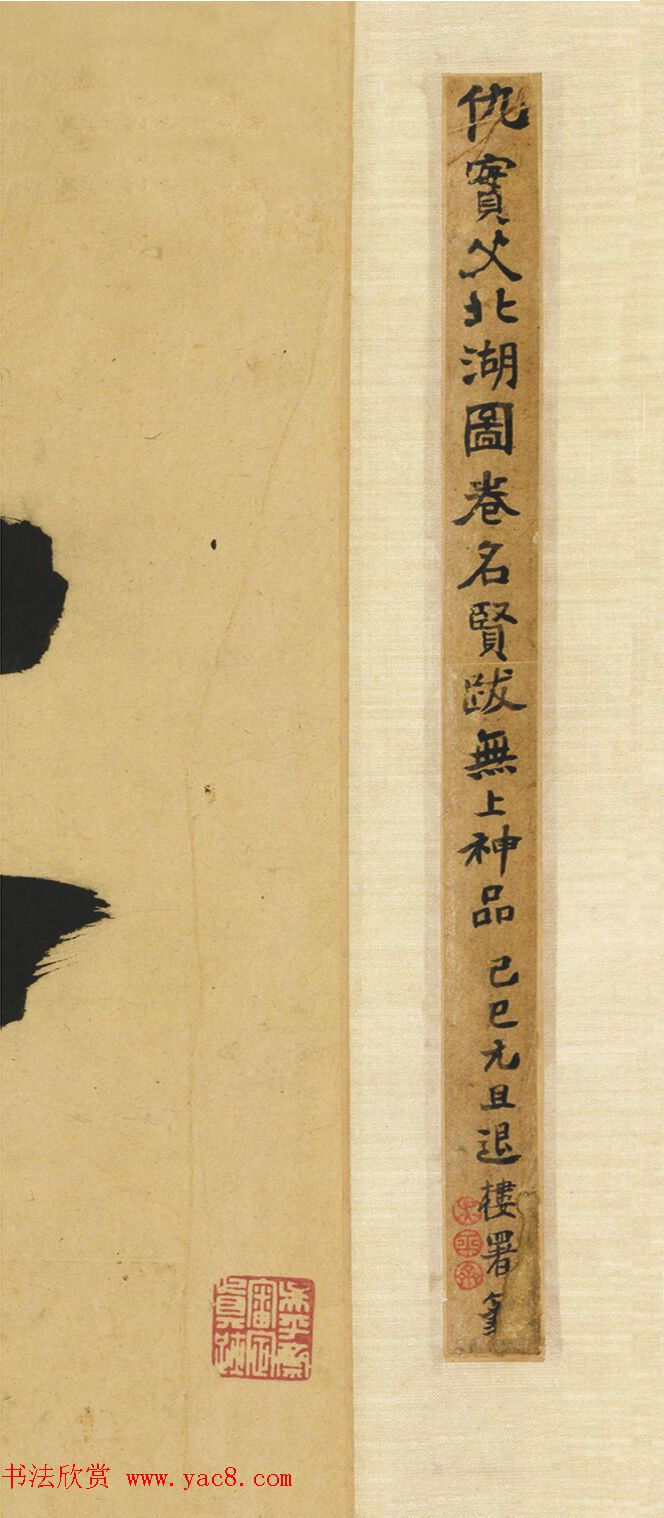 仇實父北湖圖卷名賢跋無上神品
己巳元旦退樓署
吳平齋
書法欣赏 www.yac8.com